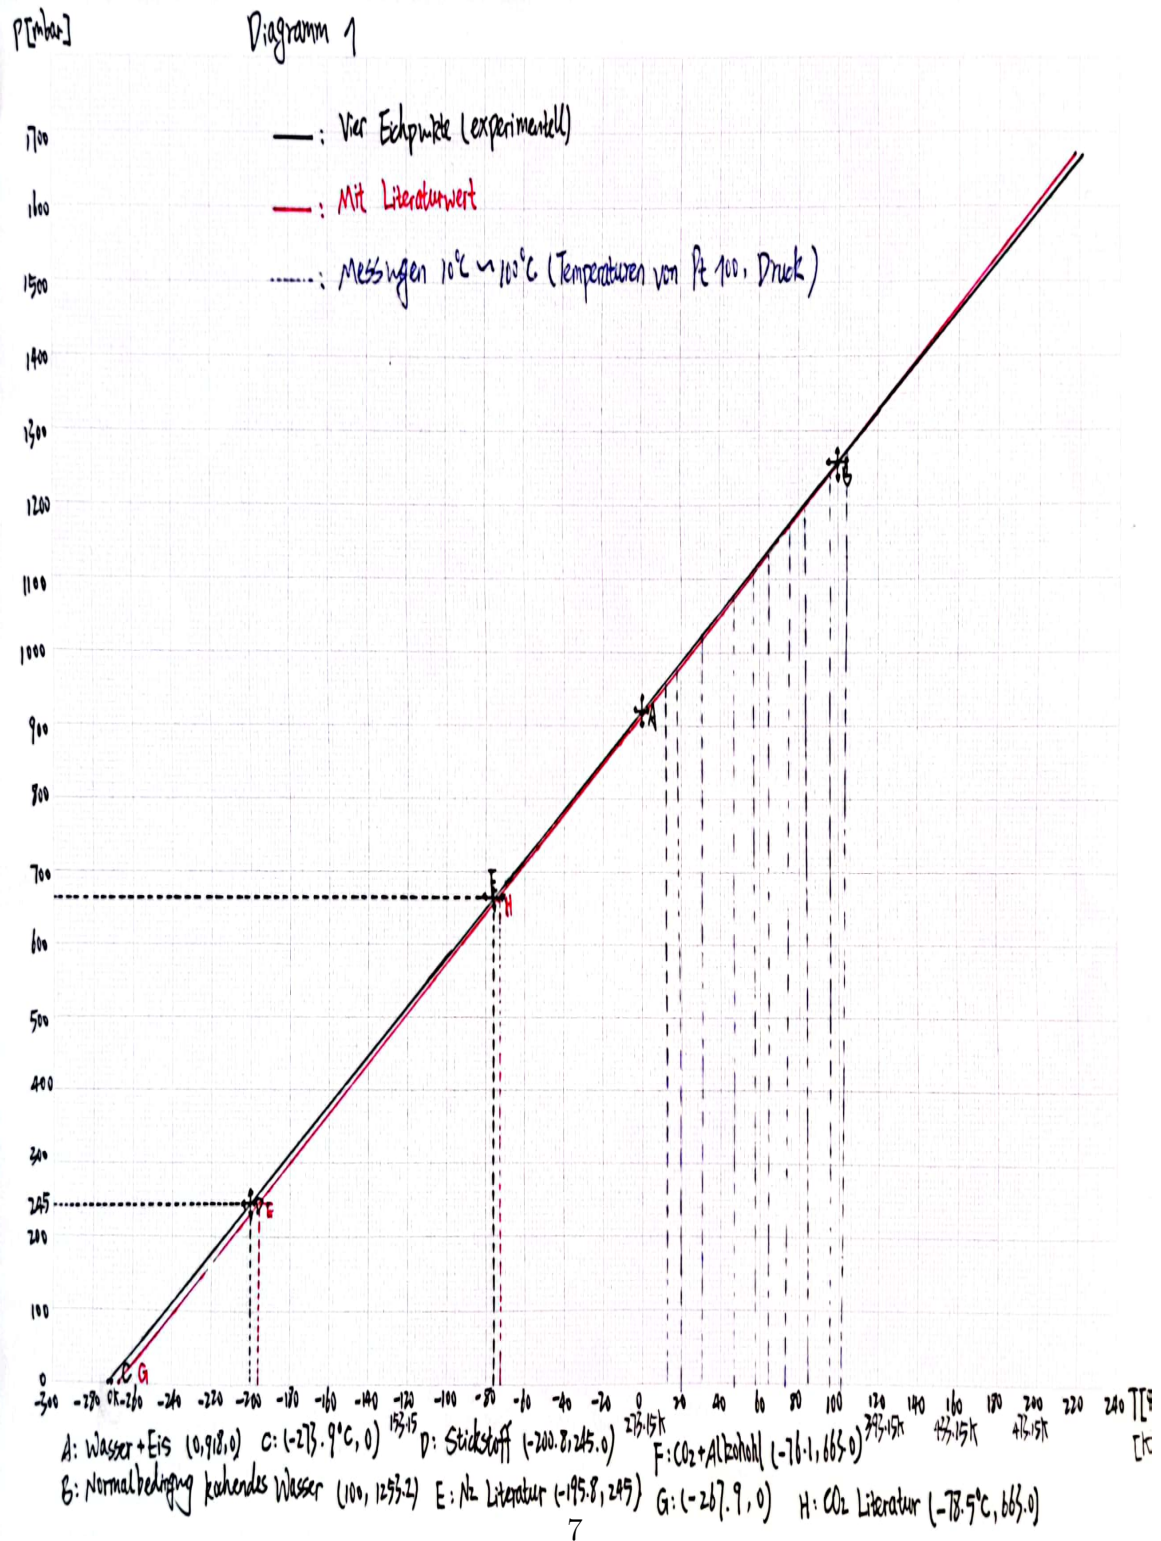 P[mbar]
Diagramm 1
—: Vier Eichpunkte (experimentell)
—: Mit Literaturwert
-----: Messungen 10°C ~ 100°C (Temperaturen von Pt 100, Druck)
1700
1600
1500
1400
1300
1200
1100
1000
900
800
700
600
500
400
300
245
200
100
0
B
A
F
H
D
E
C
G
-300 -280 0K -260 -240 -220 -200 -180 -160 -140 -120 -100 -80 -60 -40 -20 0 20 40 60 80 100 120 140 160 180 200 220 240
153.15 273.15K 393.15K 433.15K 473.15K
A: Wasser+Eis (0,918,0) C: (-273.9°C, 0) D: Stickstoff (-200.8,245.0) F: CO2+Alkohohl (-76.1,663.0)
B: Normalbedingung kochendes Wasser (100, 1253.2) E: N2 Literatur (-195.8, 245) G: (-267.9, 0) H: CO2 Literatur (-78.5°C, 663.0)
7